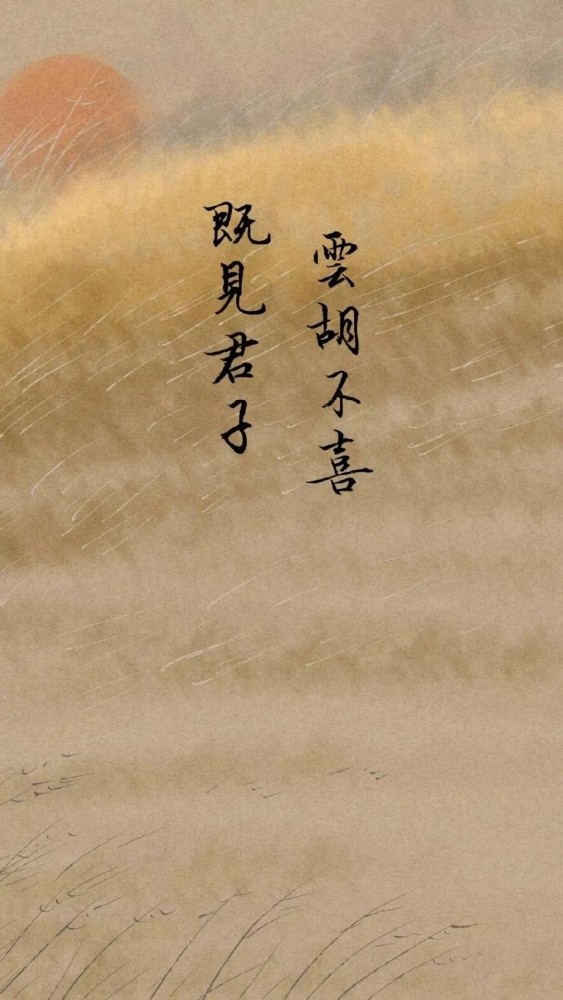 既見君子
雲胡不喜